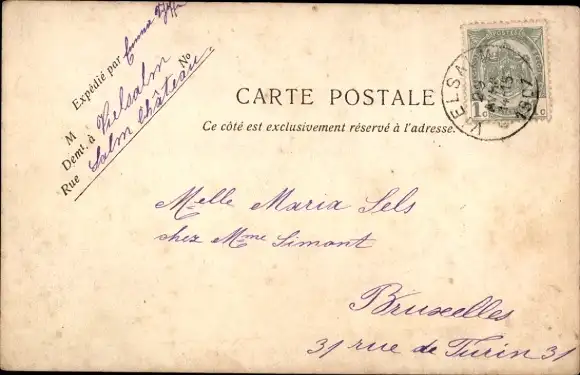 Expédié par Emma
M
Demt. à Vielsalm No
Rue Salm Château
CARTE POSTALE
Ce côté est exclusivement réservé à l'adresse.
VIELSALM
1901
Melle Maria Sels
chez Mme Simont
Bruxelles
31 rue de Turin 31